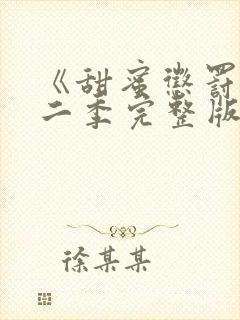 《甜蜜惩罚
二季完整版
徐某某